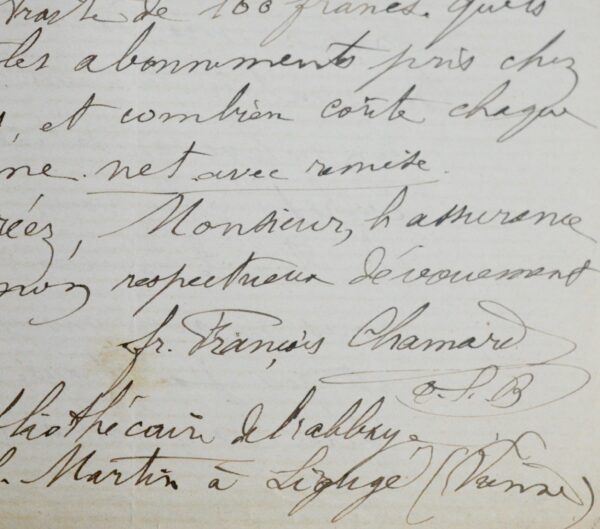 traite de 100 francs. quels
les abonnements pris chez
, et combien coûte chaque
ne net avec remise.
réez, Monsieur, l'assurance
mon respectueux dévouement
fr. François Chamard
O. S. B
bliothécaire de l'abbaye
S. Martin à Ligugé (Vienne)